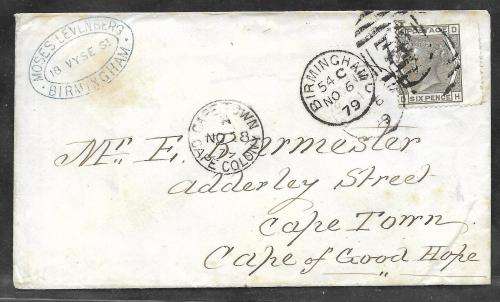 MOSES LEVENBERG
18 VYSE St
BIRMINGHAM
BIRMINGHAM
54 C
NO 6
79
POSTAGE
D
D SIX PENCE H
CAPE TOWN
NO 28
CAPE COLONY
Mr. E.
Adderley Street
Cape Town
Cape of Good Hope